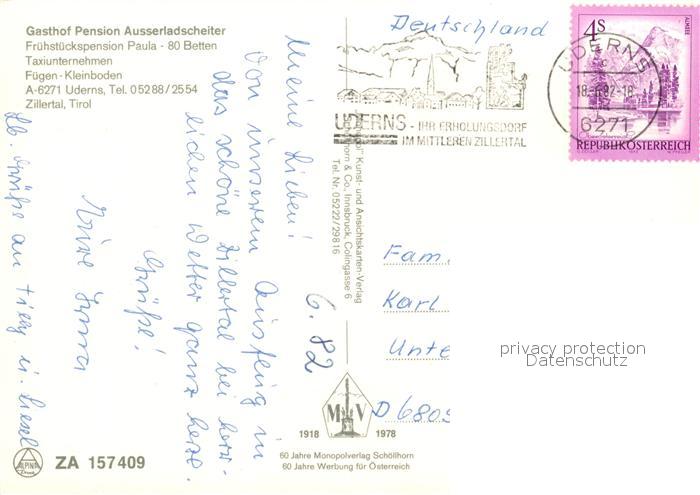 Gasthof Pension Ausserladscheiter
Frühstückspension Paula - 80 Betten
Taxiunternehmen
Fügen - Kleinboden
A-6271 Uderns, Tel. 05288/2554
Zillertal, Tirol
Meine Lieben!
Von unserem Ausflug in
das schöne Zillertal bei herr-
lichen Wetter ganz herz.
Grüße!
Eure
Lb. Grüße an Tilly u. Liesel
6. 82
Kunst- und Ansichtskarten-Verlag
& Co., Innsbruck, Colingasse 6
Tel. Nr. 05222/29816
Deutschland
UDERNS - IHR ERHOLUNGSDORF
IM MITTLEREN ZILLERTAL
UDERNS
18.-6.82-18
6271
4S
ALMSEE
REPUBLIK ÖSTERREICH
Fam.
Karl
Unte
D 6805
privacy protection
Datenschutz
M V
1918 1978
60 Jahre Monopolverlag Schöllhorn
60 Jahre Werbung für Österreich
ALPINA
ZA 157409